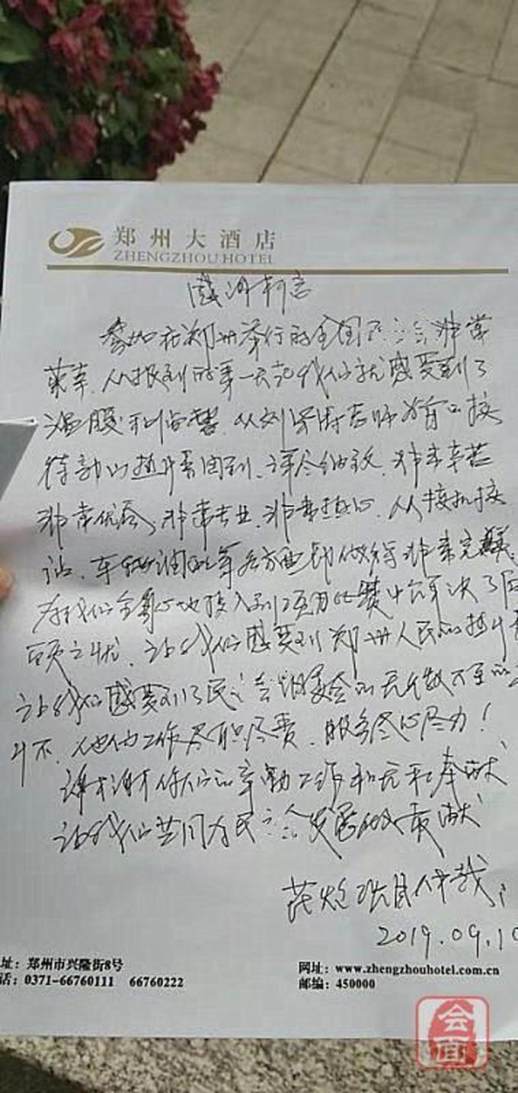 郑州大酒店
ZHENGZHOU HOTEL
感谢
参加在郑州举行的全国民运会非常
荣幸,从报到的第一天起我们就感受到了
温暖和,从刘老师为首的接
待部的热情周到、详尽细致,非常辛苦
非常优秀,非常专业、非常热心,从接机接
站,车辆等各方面都做得非常完美,
为我们全身心地投入到项目比赛中解决了后
顾之忧,让我们感受到郑州人民的热情
让我们感受到了民运会组委会的无微不至的
他们工作尽职尽责,服务尽心尽力!
谢谢你们的辛勤工作和无私奉献
让我们共同为民运会发展做贡献
项目仲裁
2019.09.10
址:郑州市兴隆街8号
话:0371-66760111 66760222
网址:www.zhengzhouhotel.com.cn
邮编:450000
会面